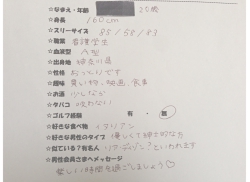 ☆なまえ・年齢 20歳
☆身長 160cm
☆スリーサイズ 85/58/83
☆職業 看護学生
☆血液型 A型
☆出身地 神奈川県
☆性格 おっとりです
☆趣味 買い物、映画、食事
☆お酒 少しなら
☆タバコ 吸わない
☆ゴルフ経験 有・無
☆好きな食べ物 イタリアン
☆好きな男性のタイプ 優しくて紳士的な方
☆似ている?有名人 といわれます
☆男性会員さまへメッセージ
楽しい時間を過ごしましょう♡